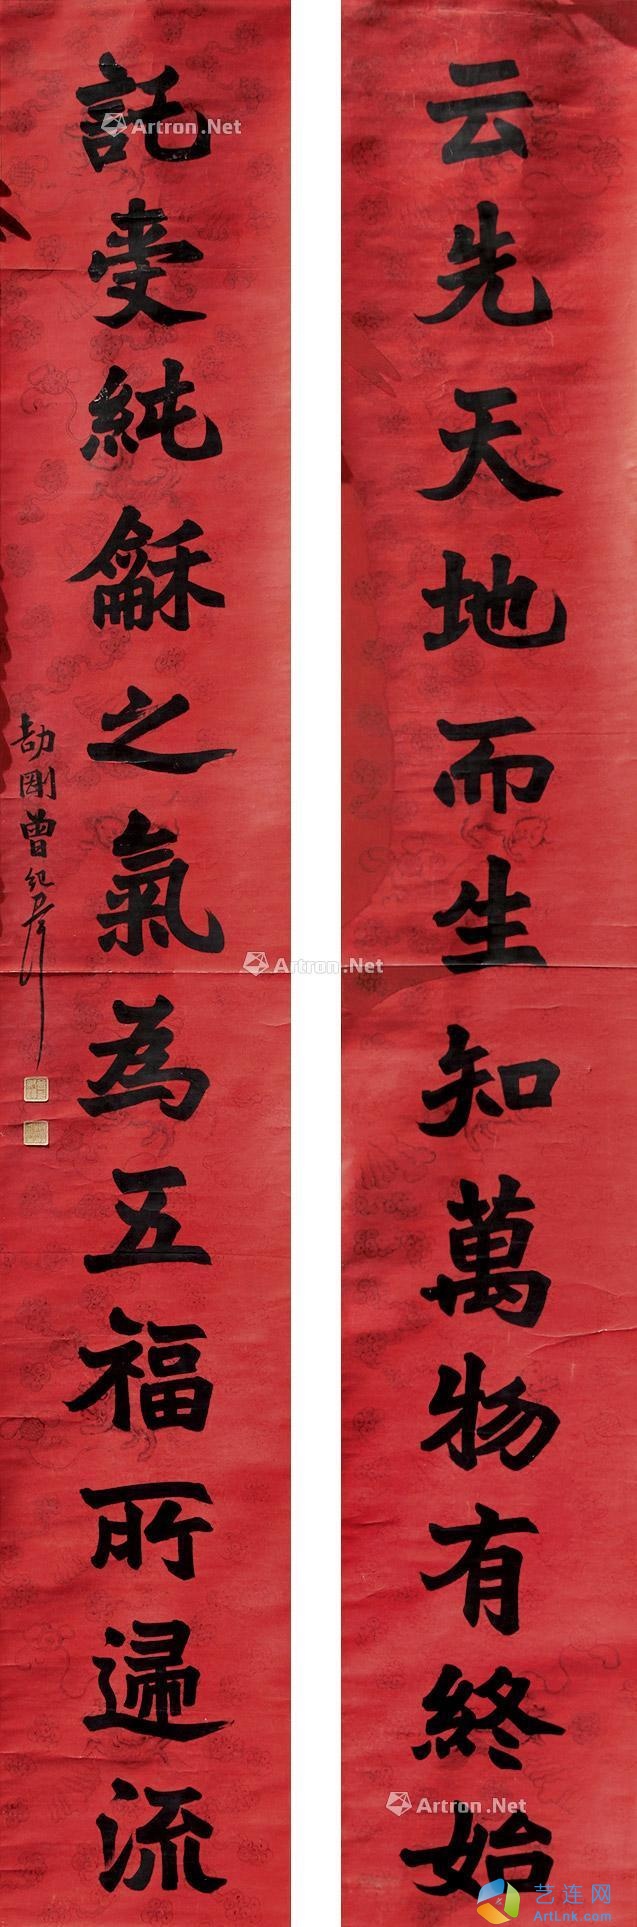 云先天地而生知萬物有終始
託受純龢之氣為五福所歸流
劼剛曾紀澤
Artron.Net
Artron.Net
Artron.Net
Artron.Net
艺连网
ArtLnk.com